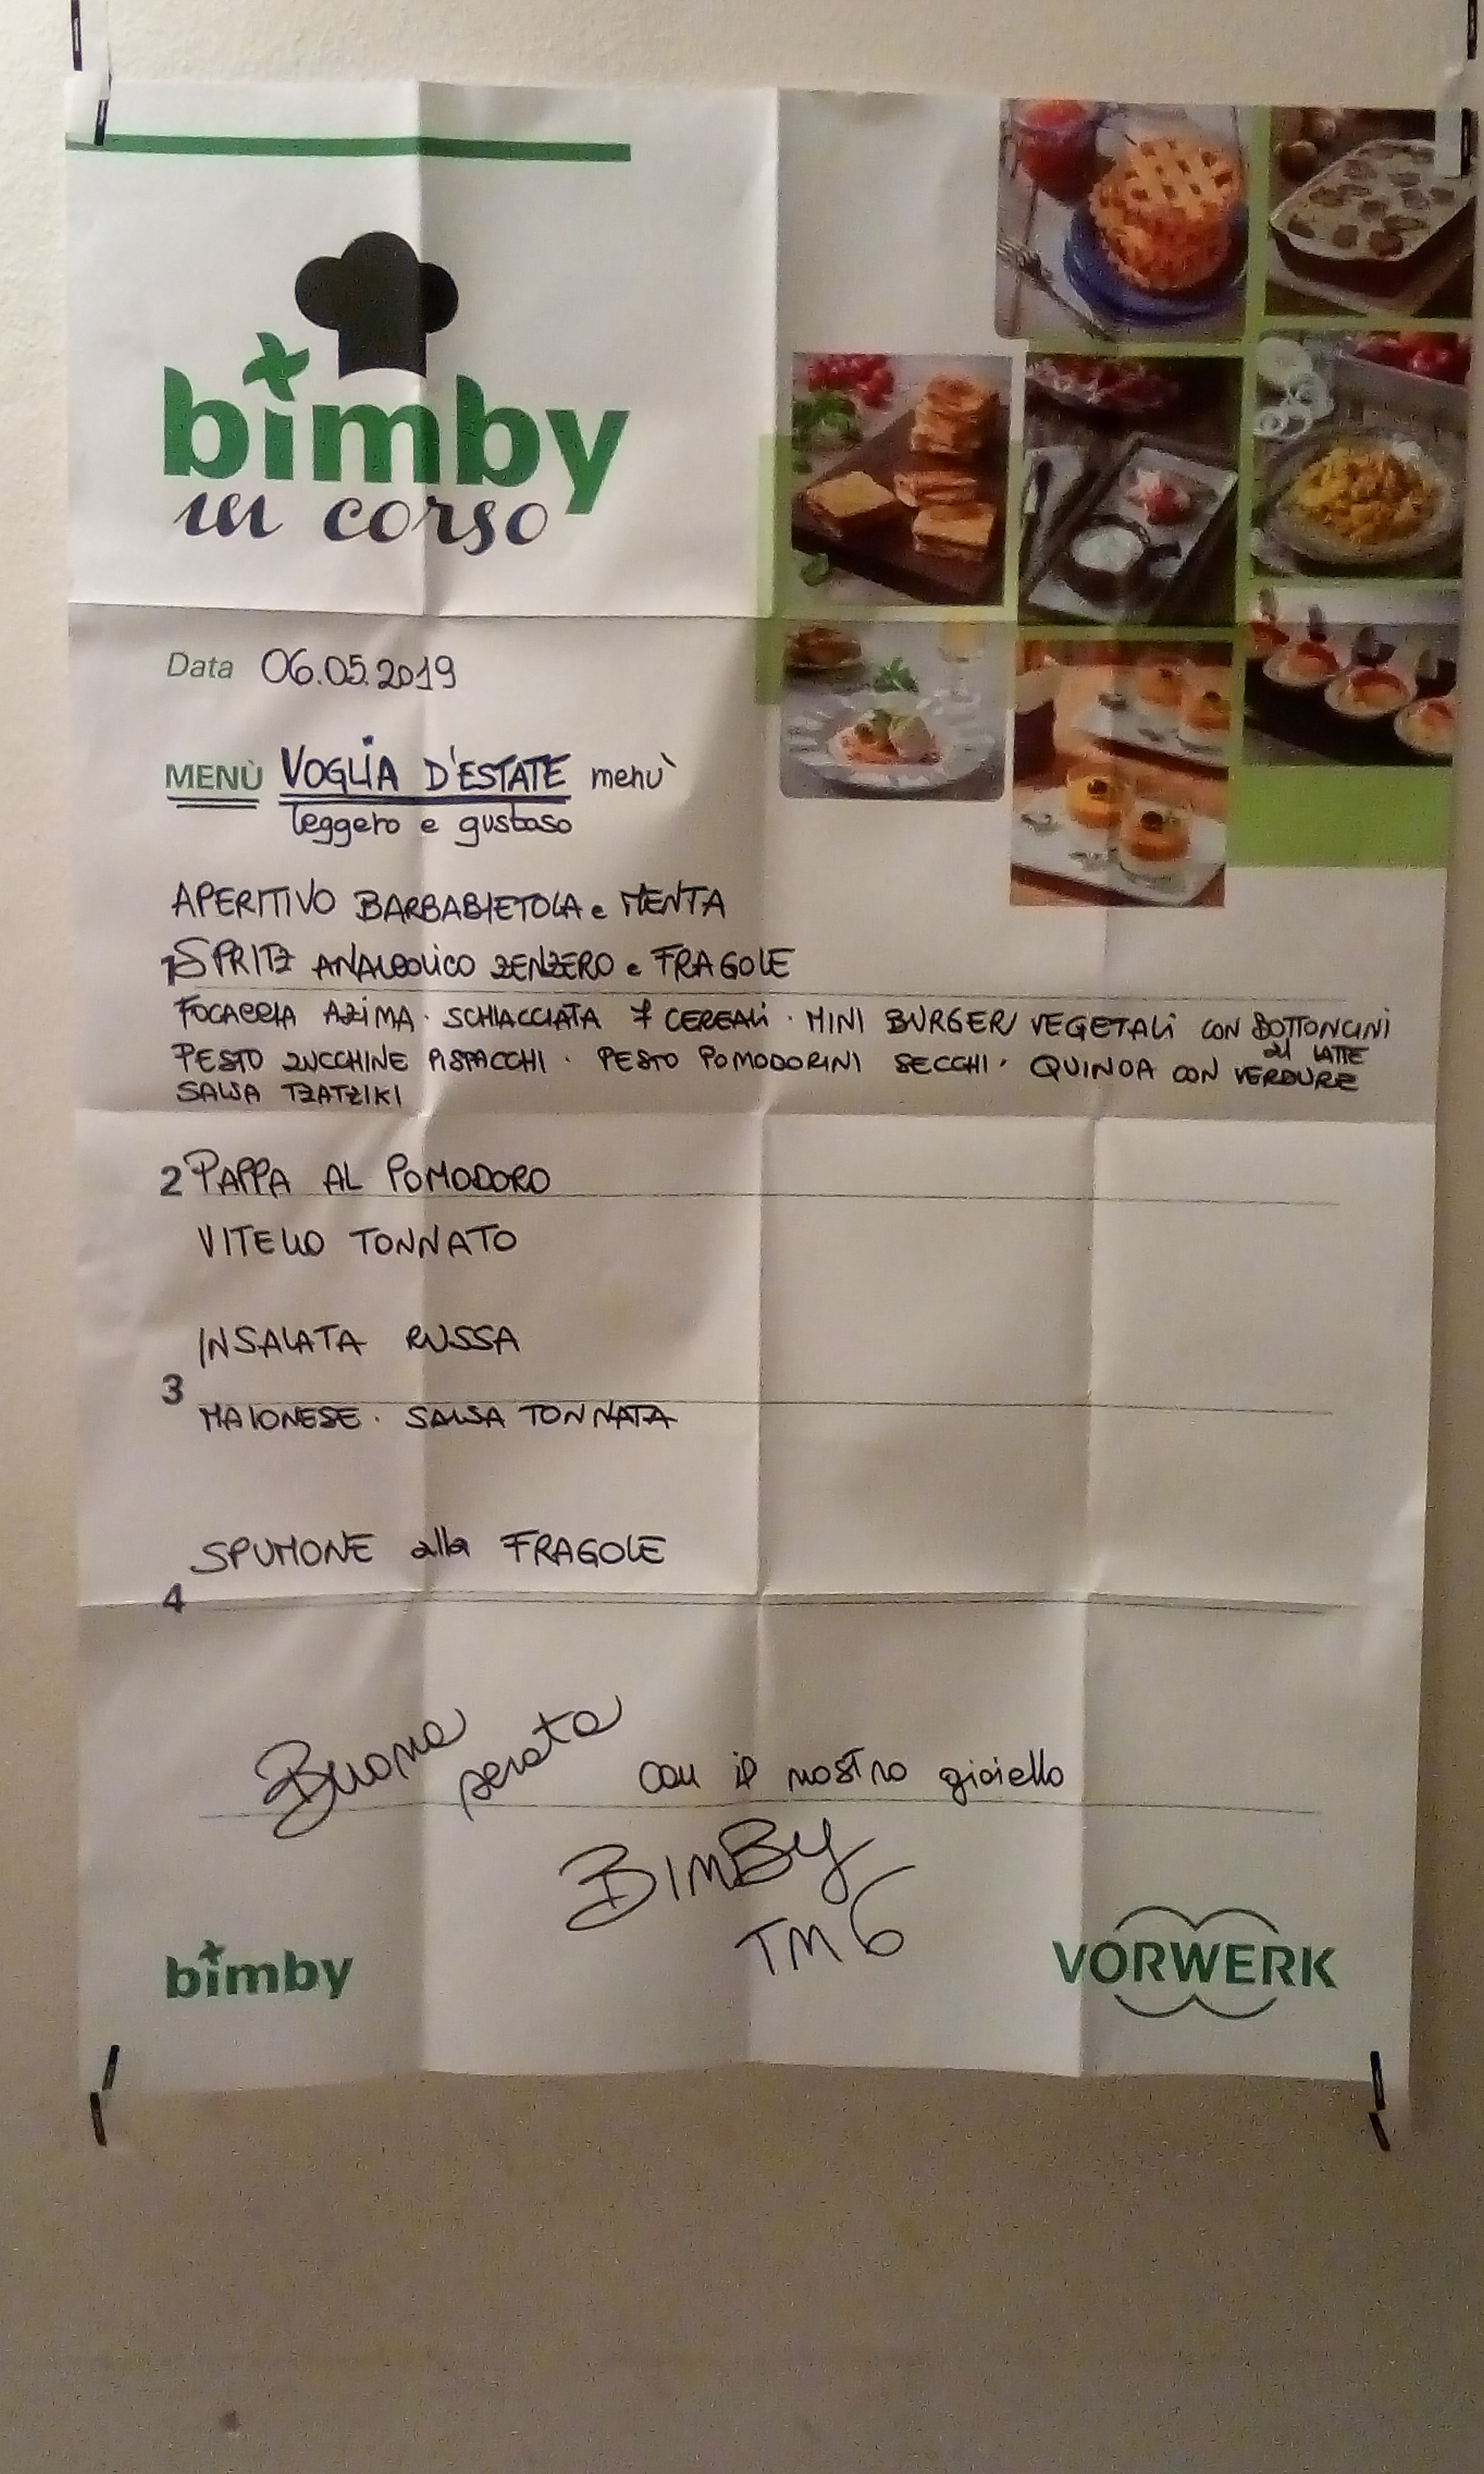 bimby
in corso
Data 06.05.2019
MENÙ VOGLIA D'ESTATE menu'
leggero e gustoso
APERITIVO BARBABIETOLA e MENTA
1 SPRITZ ANALCOLICO ZENZERO e FRAGOLE
FOCACCIA AZIMA · SCHIACCIATA 7 CEREALI · MINI BURGER VEGETALI CON BOTTONCINI
al LATTE
PESTO ZUCCHINE PISTACCHI · PESTO POMODORINI SECCHI · QUINOA CON VERDURE
SALSA TZATZIKI
2 PAPPA AL POMODORO
VITELLO TONNATO
INSALATA RUSSA
3
MAIONESE · SALSA TONNATA
SPUMONE alla FRAGOLE
4
Buona serata con il nostro gioiello
BIMBY
TM6
bimby
VORWERK